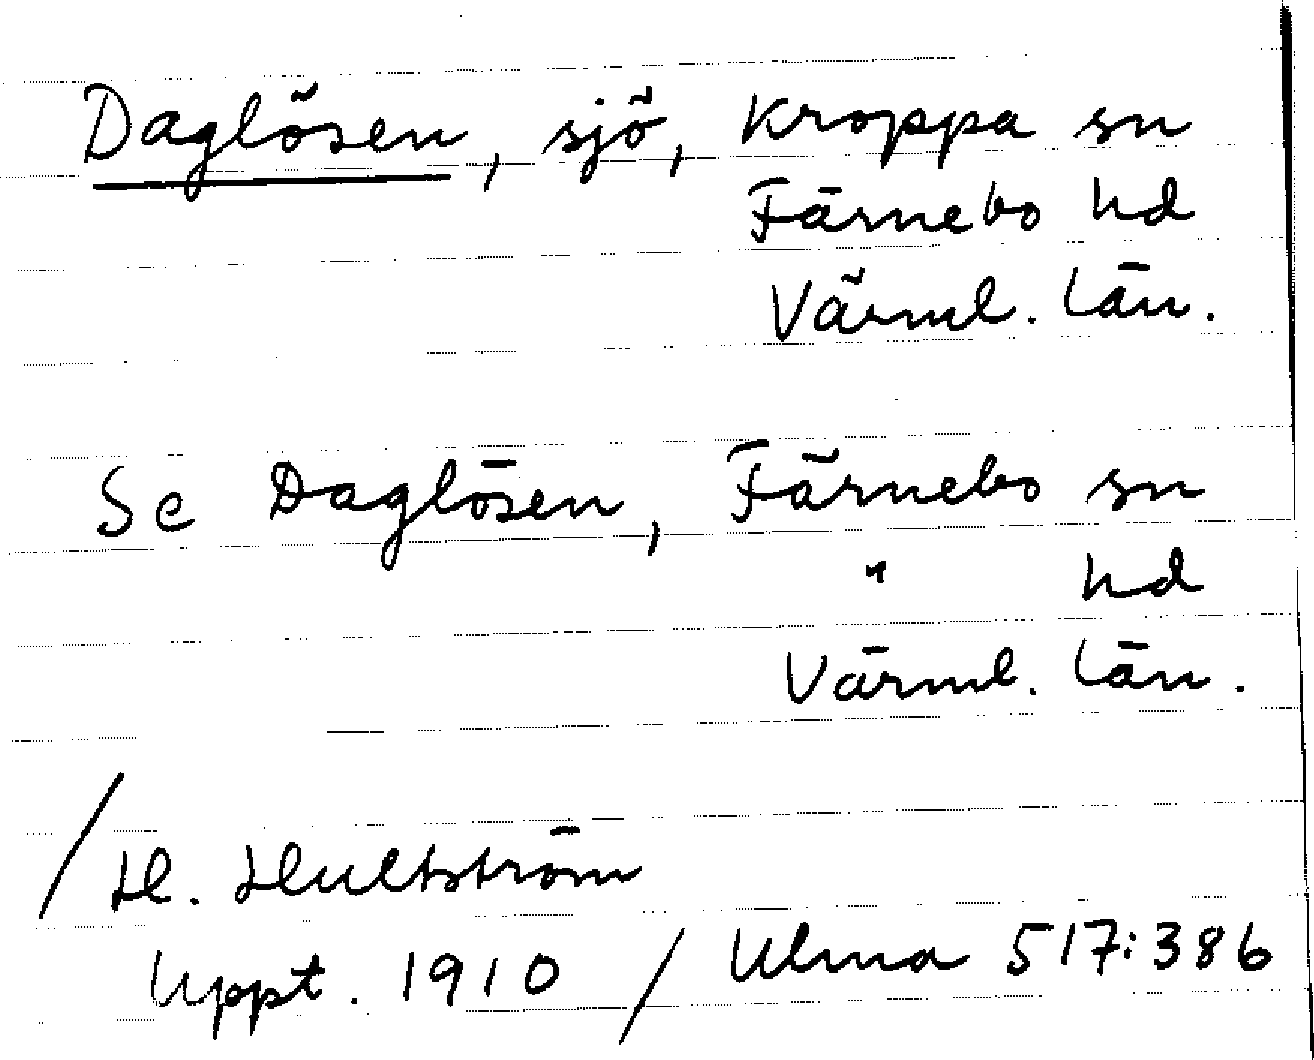 Daglösen, sjö, Kroppa sn
Färnebo hd
Värml. län.
Se Daglösen, Färnebo sn
" hd
Värml. län.
/ H. Hultström
Uppt. 1910 / Ulma 517:386